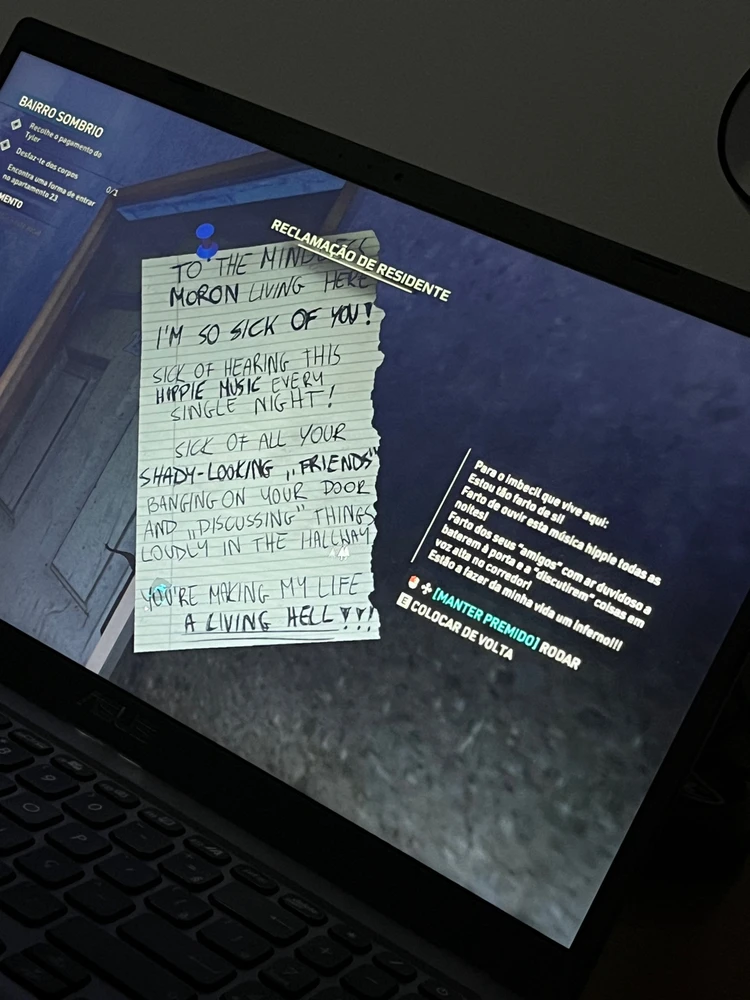 BAIRRO SOMBRIO
Recolhe o pagamento do
Tyler
Desfaz-te dos corpos
0/3
Encontra uma forma de entrar
no apartamento 23
MENTO
RECLAMAÇÃO DE RESIDENTE
TO THE
MORON LIVING HERE
I'M SO SICK OF YOU!
SICK OF HEARING THIS
HIPPIE MUSIC EVERY
SINGLE NIGHT!
SICK OF ALL YOUR
SHADY-LOOKING „FRIENDS"
BANGING ON YOUR DOOR
AND „DISCUSSING" THINGS
LOUDLY IN THE HALLWAY
YOU'RE MAKING MY LIFE
A LIVING HELL!!!
Para o imbecil que vive aqui:
Estou tão farto de si!
Farto de ouvir esta música hippie todas as
noites!
Farto dos seus "amigos" com ar duvidoso a
baterem à porta e a "discutirem" coisas em
voz alta no corredor!
Estão a fazer da minha vida um inferno!!!
[MANTER PREMIDO] RODAR
E COLOCAR DE VOLTA
ASUS